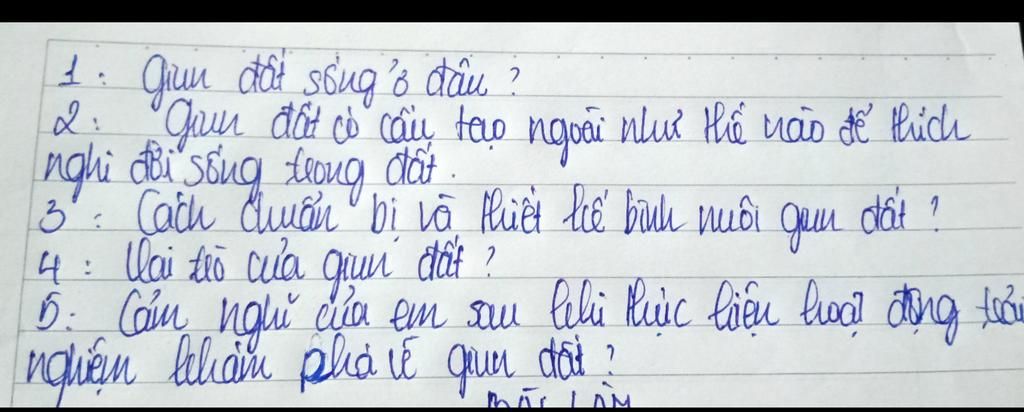 1: Giun đất sống ở đâu?
2: Giun đất có cấu tạo ngoài như thế nào để thích
nghi đời sống trong đất.
3: Cách chuẩn bị và thiết kế bình nuôi giun đất?
4: Vai trò của giun đất?
5: Cảm nghĩ của em sau khi thực hiện hoạt động trải
nghiệm khám phá về giun đất?
BÀI LÀM